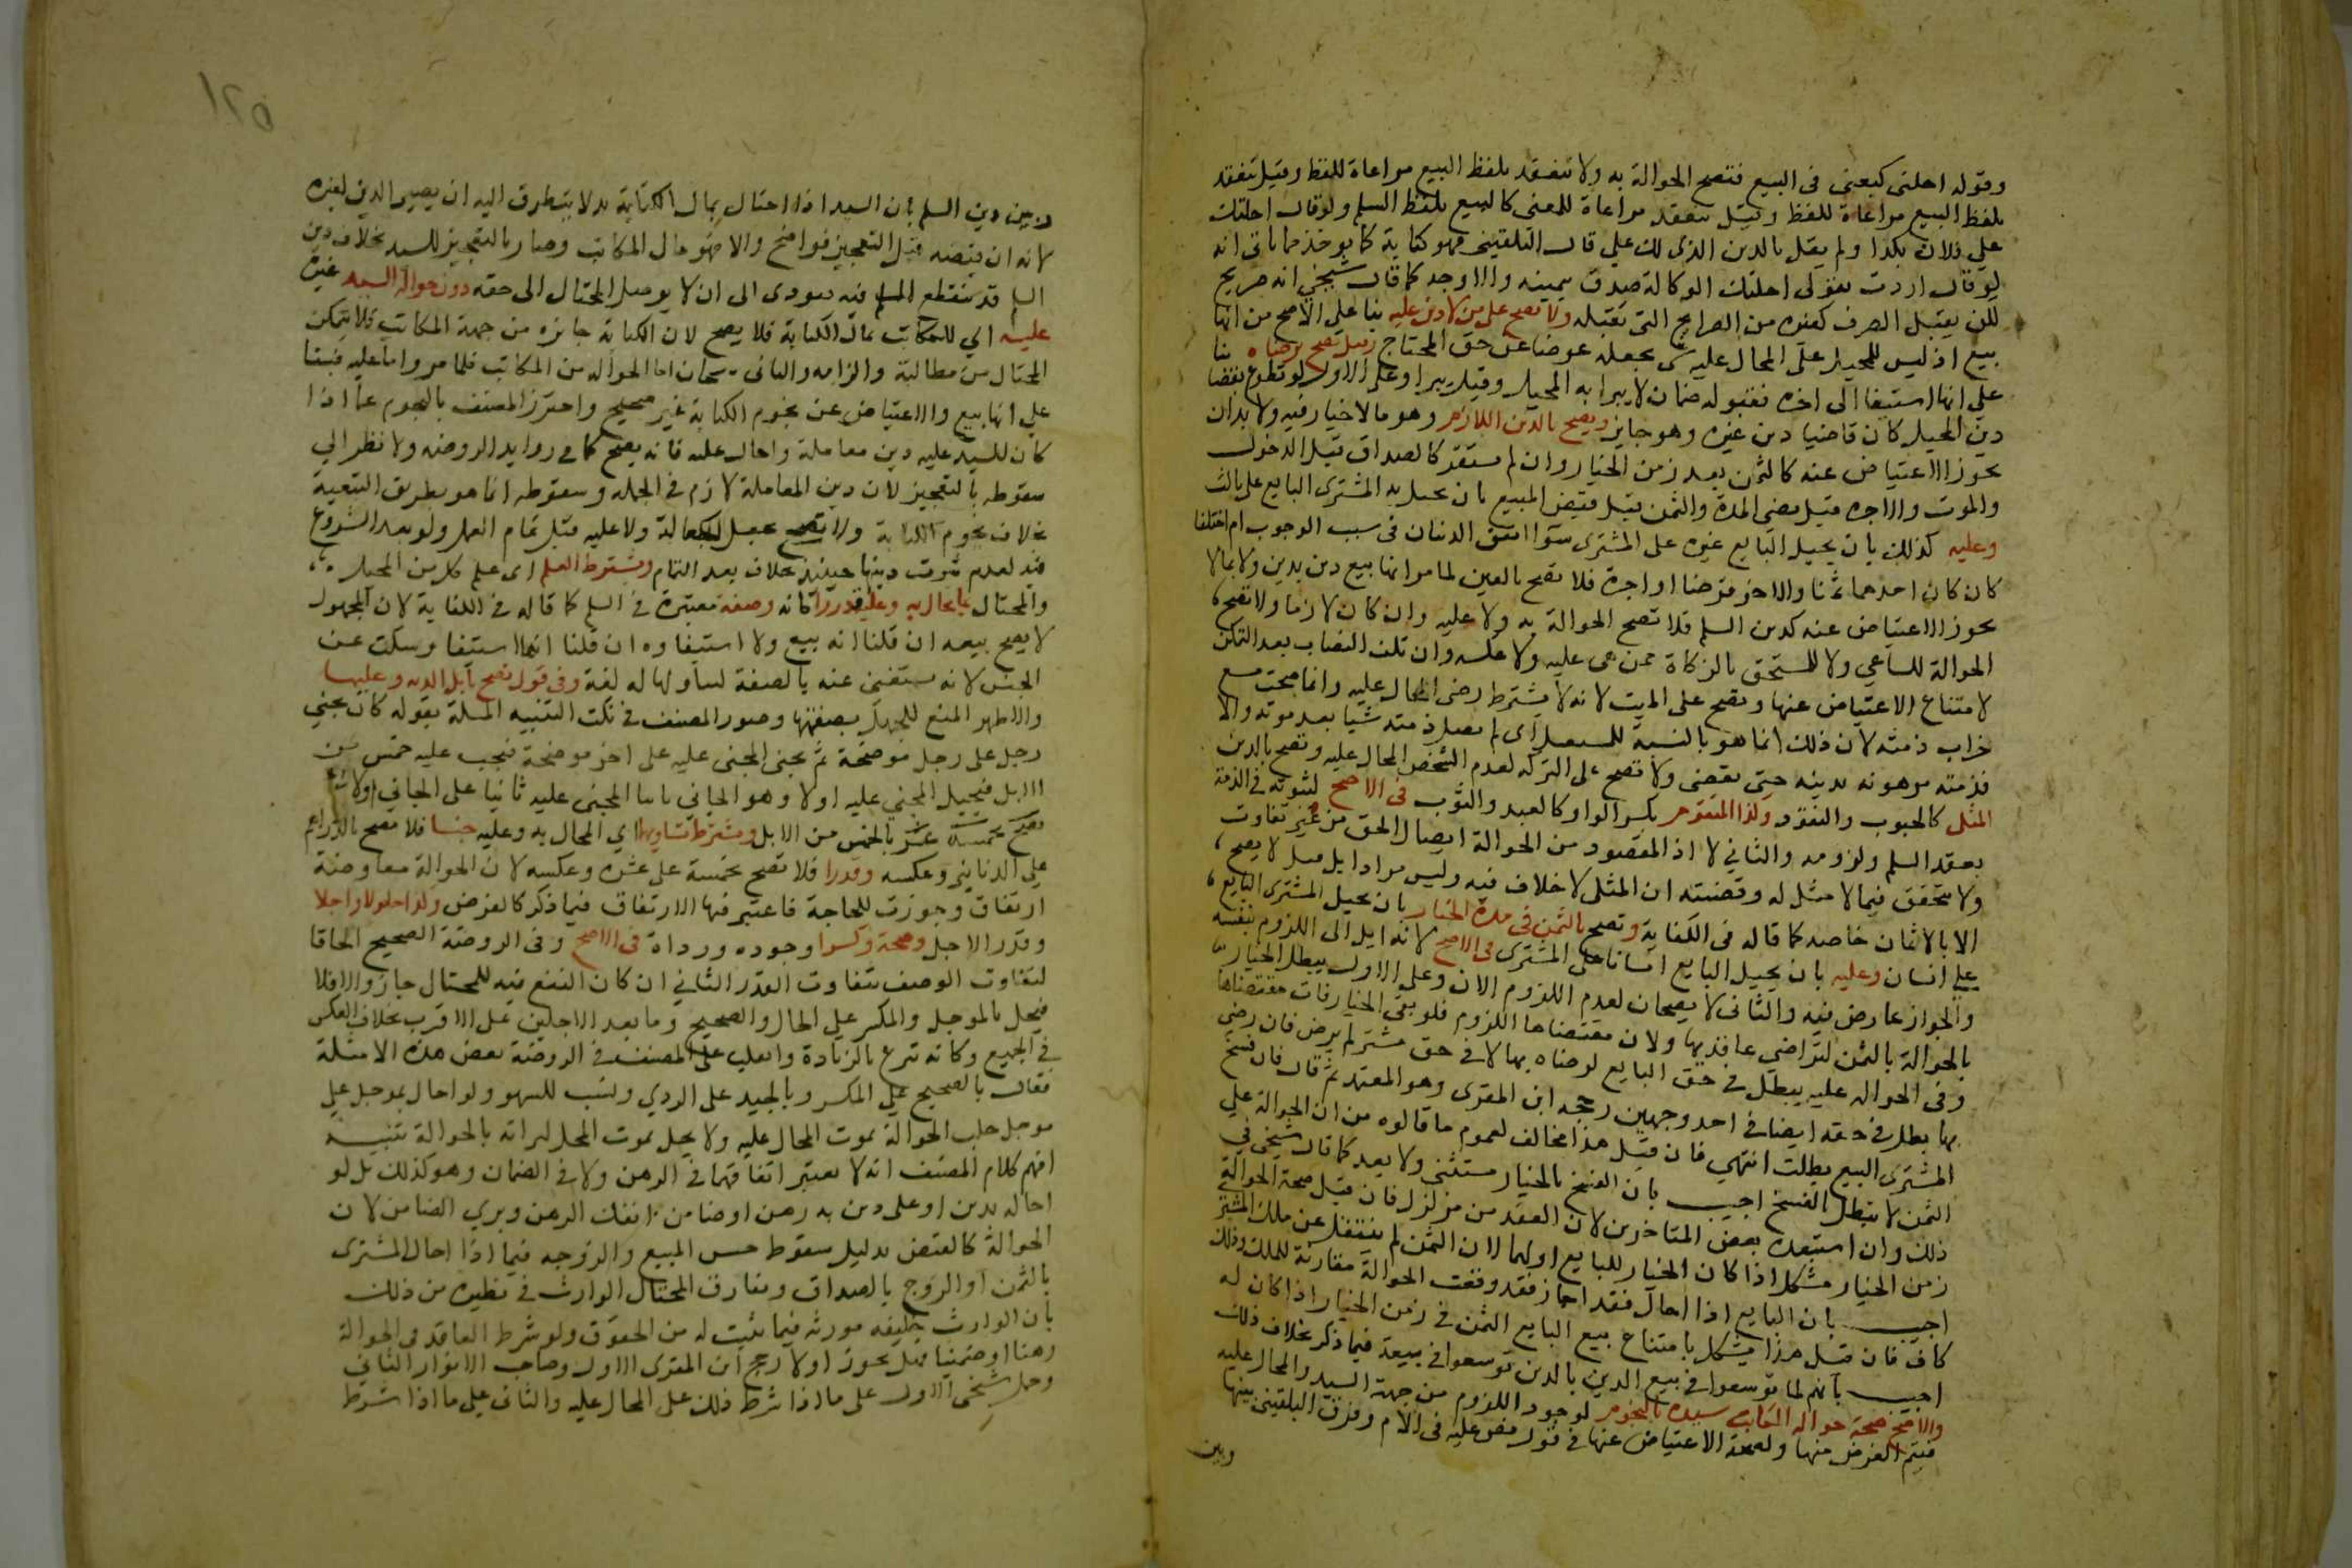 وقوله احلنى كبعنى فى البيع فتصح الحوالة به ولا تنعقد بلفظ البيع مراعاة للفظ وقيل تنعقد
بلفظ البيع مراعاة للفظ وقيل تنعقد مراعاة للمعنى كالبيع بلفظ السلم ولو قال احلتك
على فلان بكذا ولم يقل بالدين الذى لك على قال البلقينى فهو كناية كما يوخذ مما ياتى انه
لو قال اردت بقولى احلتك الوكالة صدق بيمينه والاوجه كما قال شيخى انه صريح
لكن يقبل الصرف كغيره من الصرايح التى تقبله ولا تصح على من لا دين عليه بنا على الاصح من انها
بيع اذ ليس للمحيل على المحال عليه شى يجعله عوضا عن حق المحتاج وقيل تصح برضاه بنا
على انها استيفا الى اخره فقبوله ضمان لا يبرا به المحيل وقيل يبرا وعلى الاول لو تطوع بقضا
دين المحيل كان قاضيا دين غيره وهو جايز وتصح بالدين اللازم وهو ما لا خيار فيه ولا بد ان
يجوز الاعتياض عنه كالثمن بعد زمن الخيار وان لم يستقر كالصداق قبل الدخول
والموت والاجرة قبل مضى المدة والثمن قبل قبض المبيع بان يحيل به المشترى البايع على ثالث
وعليه كذلك بان يحيل البايع غيره على المشترى سوا اتفق الدينان فى سبب الوجوب ام اختلفا
كان كان احدهما ثمنا والاخر قرضا او اجرة فلا تصح بالعين لما مر انها بيع دين بدين ولا بما لا
يجوز الاعتياض عنه كدين السلم فلا تصح الحوالة به ولا عليه وان كان لازما ولا تصح
الحوالة للساعي ولا للمستحق بالزكاة ممن هى عليه ولا عكسه وان تلف النصاب بعد التمكن
لامتناع الاعتياض عنها وتصح على الميت لانه لا يشترط رضى المحال عليه وانما صحت مع
خراب ذمته لان ذلك انما هو بالنسبة للمستقبل اى لم تقبل ذمته شيا بعد موته والا
فذمته مرهونه بدينه حتى يقضى ولا تصح على التركه لعدم الشخص المحال عليه وتصح بالدين
المثلى كالحبوب والنقود وكذا المتقوم بكسر الواو كالعبد والثوب فى الاصح لثبوته فى الذمة
بعقد السلم ولزومه والثاني لا اذ المقصود من الحوالة ايصال الحق من غير تفاوت
ولا يتحقق فيما لا مثل له وقضيته ان المثلى لا خلاف فيه وليس مرادا بل قيل لا يصح
الا بالاثمان خاصه كما قاله فى الكفاية وتصح بالثمن فى مدة الخيار بان يحيل المشترى البايع
على انسان وعليه بان يحيل البايع انسانا على المشترى فى الاصح لانه ايل الى اللزوم بنفسه
والجواز عارض فيه والثانى لا يصحان لعدم اللزوم الان وعلى الاول يبطل الخيار
بالحوالة بالثمن لتراضي عاقديها ولان مقتضاها اللزوم فلو بقى الخيار فات مقتضاها
وفى الحوالة عليه يبطل فى حق البايع لرضاه بها لا فى حق مشتر لم يرض فان رضى
بها بطل فى حقه ايضا فى احد وجهين رجحه ابن المقرى وهو المعتمد ثم قال فان فسخ
المشترى البيع بطلت انتهى فان قيل هذا مخالف لعموم ما قالوه من ان الحوالة على
الثمن لا تبطل بالفسخ اجيب بان الفسخ بالخيار مستثنى ولا بعد كما قال شيخى فى
ذلك وان استبعده بعض المتاخرين لان العقد من مزلزل فان قيل صحة الحوالة
زمن الخيار مشكل اذا كان الخيار للبايع او لهما لان الثمن لم ينتقل عن ملك المشتر
اجيب بان البايع اذا احال فقد اجاز فقد وقعت الحوالة مقارنة للملك وذلك
كاف فان قيل هذا يشكل بامتناع بيع البايع الثمن فى زمن الخيار اذا كان له
اجيب بانهم لما توسعوا فى بيع الدين بالدين توسعوا فى بيعه فيما ذكر بخلاف ذلك
والاصح صحة حوالة المكاتب سيده بالنجوم لوجود اللزوم من جهة السيد والمحال عليه
فيتم الغرض منها ولصحة الاعتياض عنها فى قول نص عليه فى الام وفرق البلقينى بينها
وبين
١٢٥
وبين دين السلم بان السيد اذا احتال بمال الكتابة بدلا يتطرق اليه ان يصير الدين لغيره
لانه ان قبضه قبل التعجيز فواضح والا فهو مال المكاتب وصار بالتعجيز للسيد بخلاف دين
السلم قد ينقطع المسلم فيه فيودى الى ان لا يوصل المحتال الى حقه دون حوالة السيد غيره
عليه اي للمكاتب بمال الكتابة فلا يصح لان الكتابة جايزه من جهة المكاتب فلا يتمكن
المحتال من مطالبة والزامه والثانى يصحان اما الحوالة من المكاتب فلما مر واما عليه فبنا
علي انها بيع والاعتياض عن نجوم الكتابة غير صحيح واحترز المصنف بالنجوم عما اذا
كان للسيد عليه دين معاملة واحال عليه فانه يصح كما فى زوايد الروضه ولا نظر الي
سقوطه بالتعجيز لان دين المعاملة لازم فى الجمله وسقوطه انما هو بطريق التبعية
بخلاف نجوم الكتابة ولا تصح بجعل الجعالة ولا عليه قبل تمام العمل ولو بعد الشروع
فيه لعدم ثبوت دينها حينيذ بخلاف بعد التمام ويشترط العلم اى علم كل من المحيل
والمحتال بما يحال به وعليه قدرا كانه وصفة معتبرة فى السلم كما قاله فى الكفاية لان المجهول
لا يصح بيعه ان قلنا انه بيع ولا استيفاوه ان قلنا انها استيفا وسكت عن
الجنس لانه يستغنى عنه بالصفة لتناولها له لغة وفى قول تصح بابل الدية وعليها
والاظهر المنع للجهل بصفتها وصور المصنف فى نكت التنبيه المسلة بقوله كان يجنى
رجل على رجل موضحة ثم يجنى المجنى عليه على اخر موضحة فيجب عليه خمس من
الابل فيحيل المجني عليه اولا وهو الجاني ثانيا المجنى عليه ثانيا على الجاني اولا
بالخمس من الابل ويشترط تساويهما اي المحال به وعليه جنسا فلا تصح بالدراهم
على الدنانير وعكسه وقدرا فلا تصح بخمسة على عشرة وعكسه لان الحوالة معاوضة
ارتفاق وجوزت للحاجة فاعتبر فيها الارتفاق فيما ذكر كالقرض وكذا حلولا واجلا
وقدر الاجل وصحة وكسرا وجوده ورداة فى الاصح وفى الروضة الصحيح الحاقا
لتفاوت الوصف بتفاوت القدر الثاني ان كان النفع فيه للمحتال جاز والا فلا
فيحل بالموجل والمكسر على الحال والصحيح وما بعد الاجلين على الاقرب بخلاف العكس
فى الجميع وكانه تبرع بالزيادة وانقلب على المصنف فى الروضة بعض هذه الامثلة
فقال بالصحيح على المكسر وبالجيد على الردي ونسب للسهو ولو احال بموجل على
موجل حلت الحوالة بموت المحال عليه ولا يحل بموت المحيل لبراته بالحوالة تنبيه
افهم كلام المصنف انه لا يعتبر اتفاقهما فى الرهن ولا فى الضمان وهو كذلك بل لو
احاله بدين او على دين به رهن او ضامن انفك الرهن وبري الضامن لان
الحوالة كالقبض بدليل سقوط حبس المبيع والزوجه فيما اذا احال المشترى
بالثمن او الزوج بالصداق ويفارق المحتال الوارث فى نظيره من ذلك
بان الوارث خليفه مورثه فيما يثبت له من الحقوق ولو شرط العاقد فى الحوالة
رهنا او ضمينا فهل يجوز او لا رجح ابن المقرى الاول وصاحب الانوار الثانى
وحمل شيخى الاول على ما اذا شرط ذلك على المحال عليه والثانى على ما اذا شرط